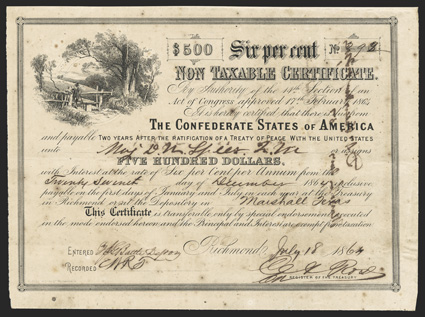 $500 Six per cent No.
NON TAXABLE CERTIFICATE.
By Authority of the 14th Section of an
Act of Congress approved 17th February 1864
It is hereby certified that there is due from
THE CONFEDERATE STATES OF AMERICA
and payable TWO YEARS AFTER THE RATIFICATION OF A TREATY OF PEACE WITH THE UNITED STATES
unto Maj. or assigns
FIVE HUNDRED DOLLARS,
with Interest at the rate of Six per Cent per Annum from the
Twenty Seventh day of December 186 inclusive
payable on the first days of January and July in each year at the Treasury
in Richmond or at the Depository in Marshall Texas
This Certificate is transferable only by special endorsement executed
in the mode endorsed hereon and the Principal and Interest are exempt from taxation
ENTERED Richmond, July 18 1864
RECORDED
REGISTER OF THE TREASURY